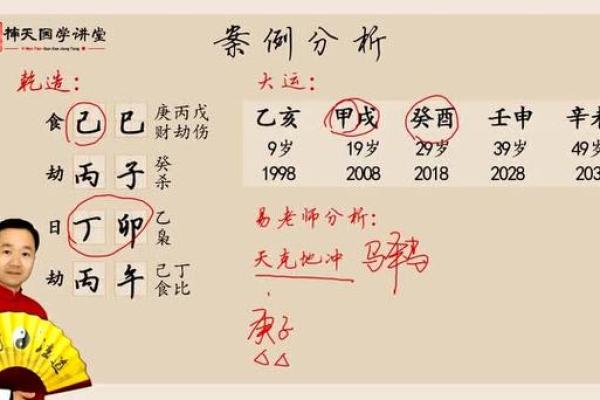 天国学讲堂
案例分析
乾造：
食 己 巳 庚丙戊
财劫伤
劫 丙 子 癸
杀
日 丁 卯 乙
枭
劫 丙 午 己丁
食比
大运：
乙亥 甲戌 癸酉 壬申 辛
9岁 19岁 29岁 39岁 49岁
1998 2008 2018 2028 203
易老师分析：
天克地冲 驿马
庚子